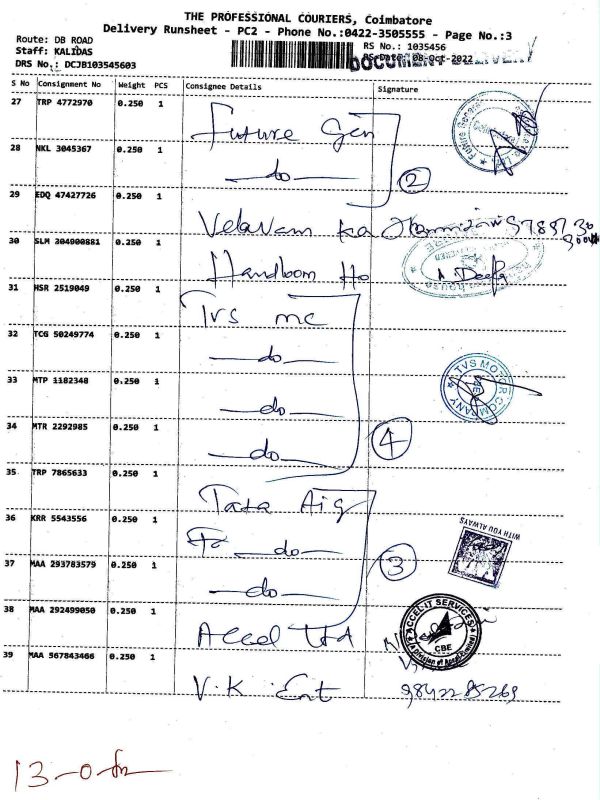 THE PROFESSIONAL COURIERS, Coimbatore
Delivery Runsheet - PC2 - Phone No.:0422-3505555 - Page No.:3
Route: DB ROAD
RS No: 1035456
Staff: KALIDAS
RS Date: 08-Oct-2022
DOCUMENT DELIVERY
DRS No.: DCJB103545603
S No Consignment No Weight PCS Consignee Details Signature
27 TRP 4772970 0.250 1 Future Gen
28 NKL 3045367 0.250 1 do
2
29 EDQ 47427726 0.250 1 Velavam ka
30 SLM 304900881 0.250 1 Handloom Ho
31 HSR 2519049 0.250 1 Tvs mc
32 TCG 50249774 0.250 1 do
TVS MOTOR COMPANY
33 MTP 1182348 0.250 1 do
34 MTR 2292985 0.250 1 do
4
35 TRP 7865633 0.250 1 Tata Aig
WITH YOU ALWAYS
36 KRR 5543556 0.250 1 do
37 MAA 293783579 0.250 1 do
3
38 MAA 292499050 0.250 1 Accel
ACCEL IT SERVICES
CBE
39 MAA 567843466 0.250 1 V.K Ent
9842285269